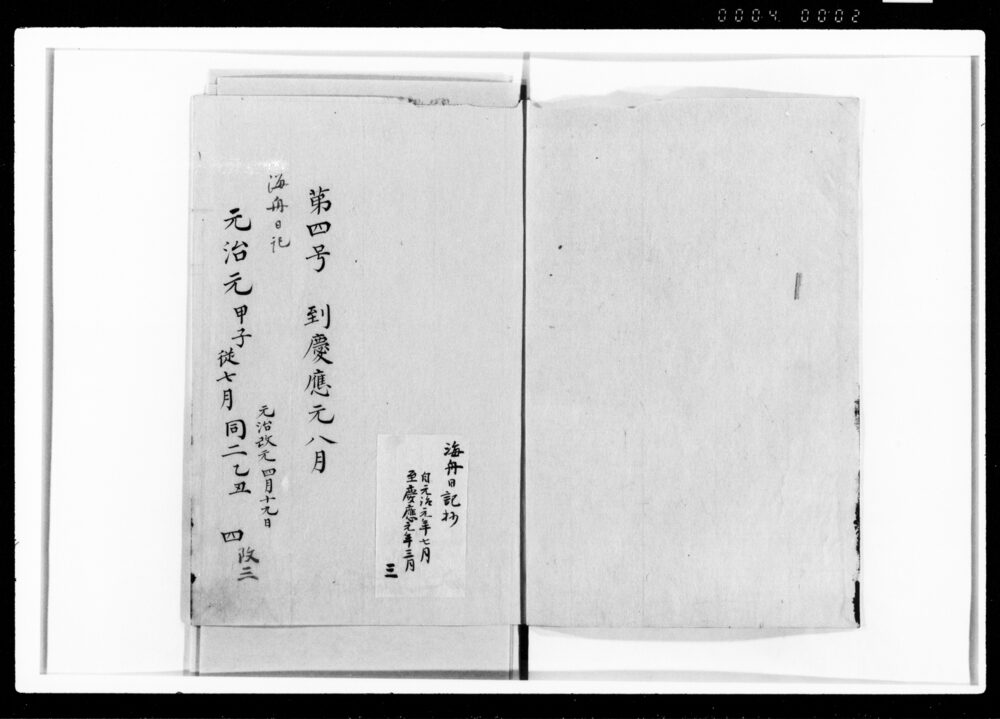 0004 0002
海舟日記抄
自元治元年七月
至慶應元年三月
三
第四号　到慶應元八月
海舟日記
元治改元四月十九日
元治元甲子従七月同二乙丑　四
改三